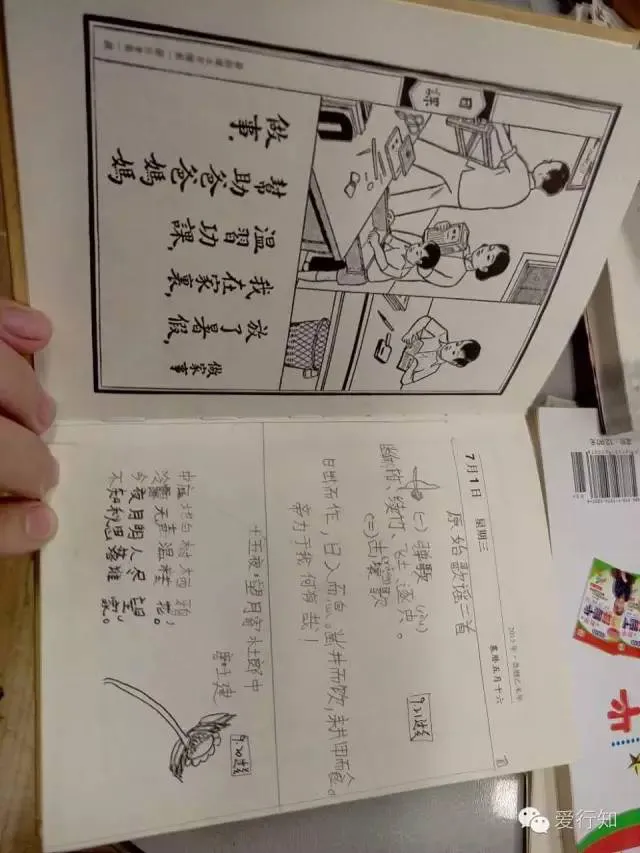 日課
做家事
放了暑假,
我在家裏,
溫習功課,
幫助爸爸媽媽
做事.
7月1日 星期三
农历五月十六
原始歌谣二首
(一) 弹歌
断竹、续竹、飞土、逐宍。
(二) 击壤歌
日出而作,日入而息。凿井而饮,耕田而食。
帝力于我何有哉!
十五夜望月寄杜郎中
唐 王建
中庭地白树栖鸦,
冷露无声湿桂花。
今夜月明人尽望,
不知秋思落谁家。
爱行知